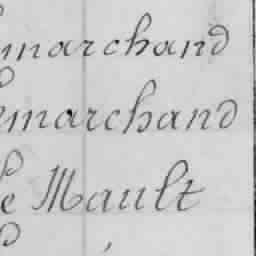 marchand
marchand
le Mault